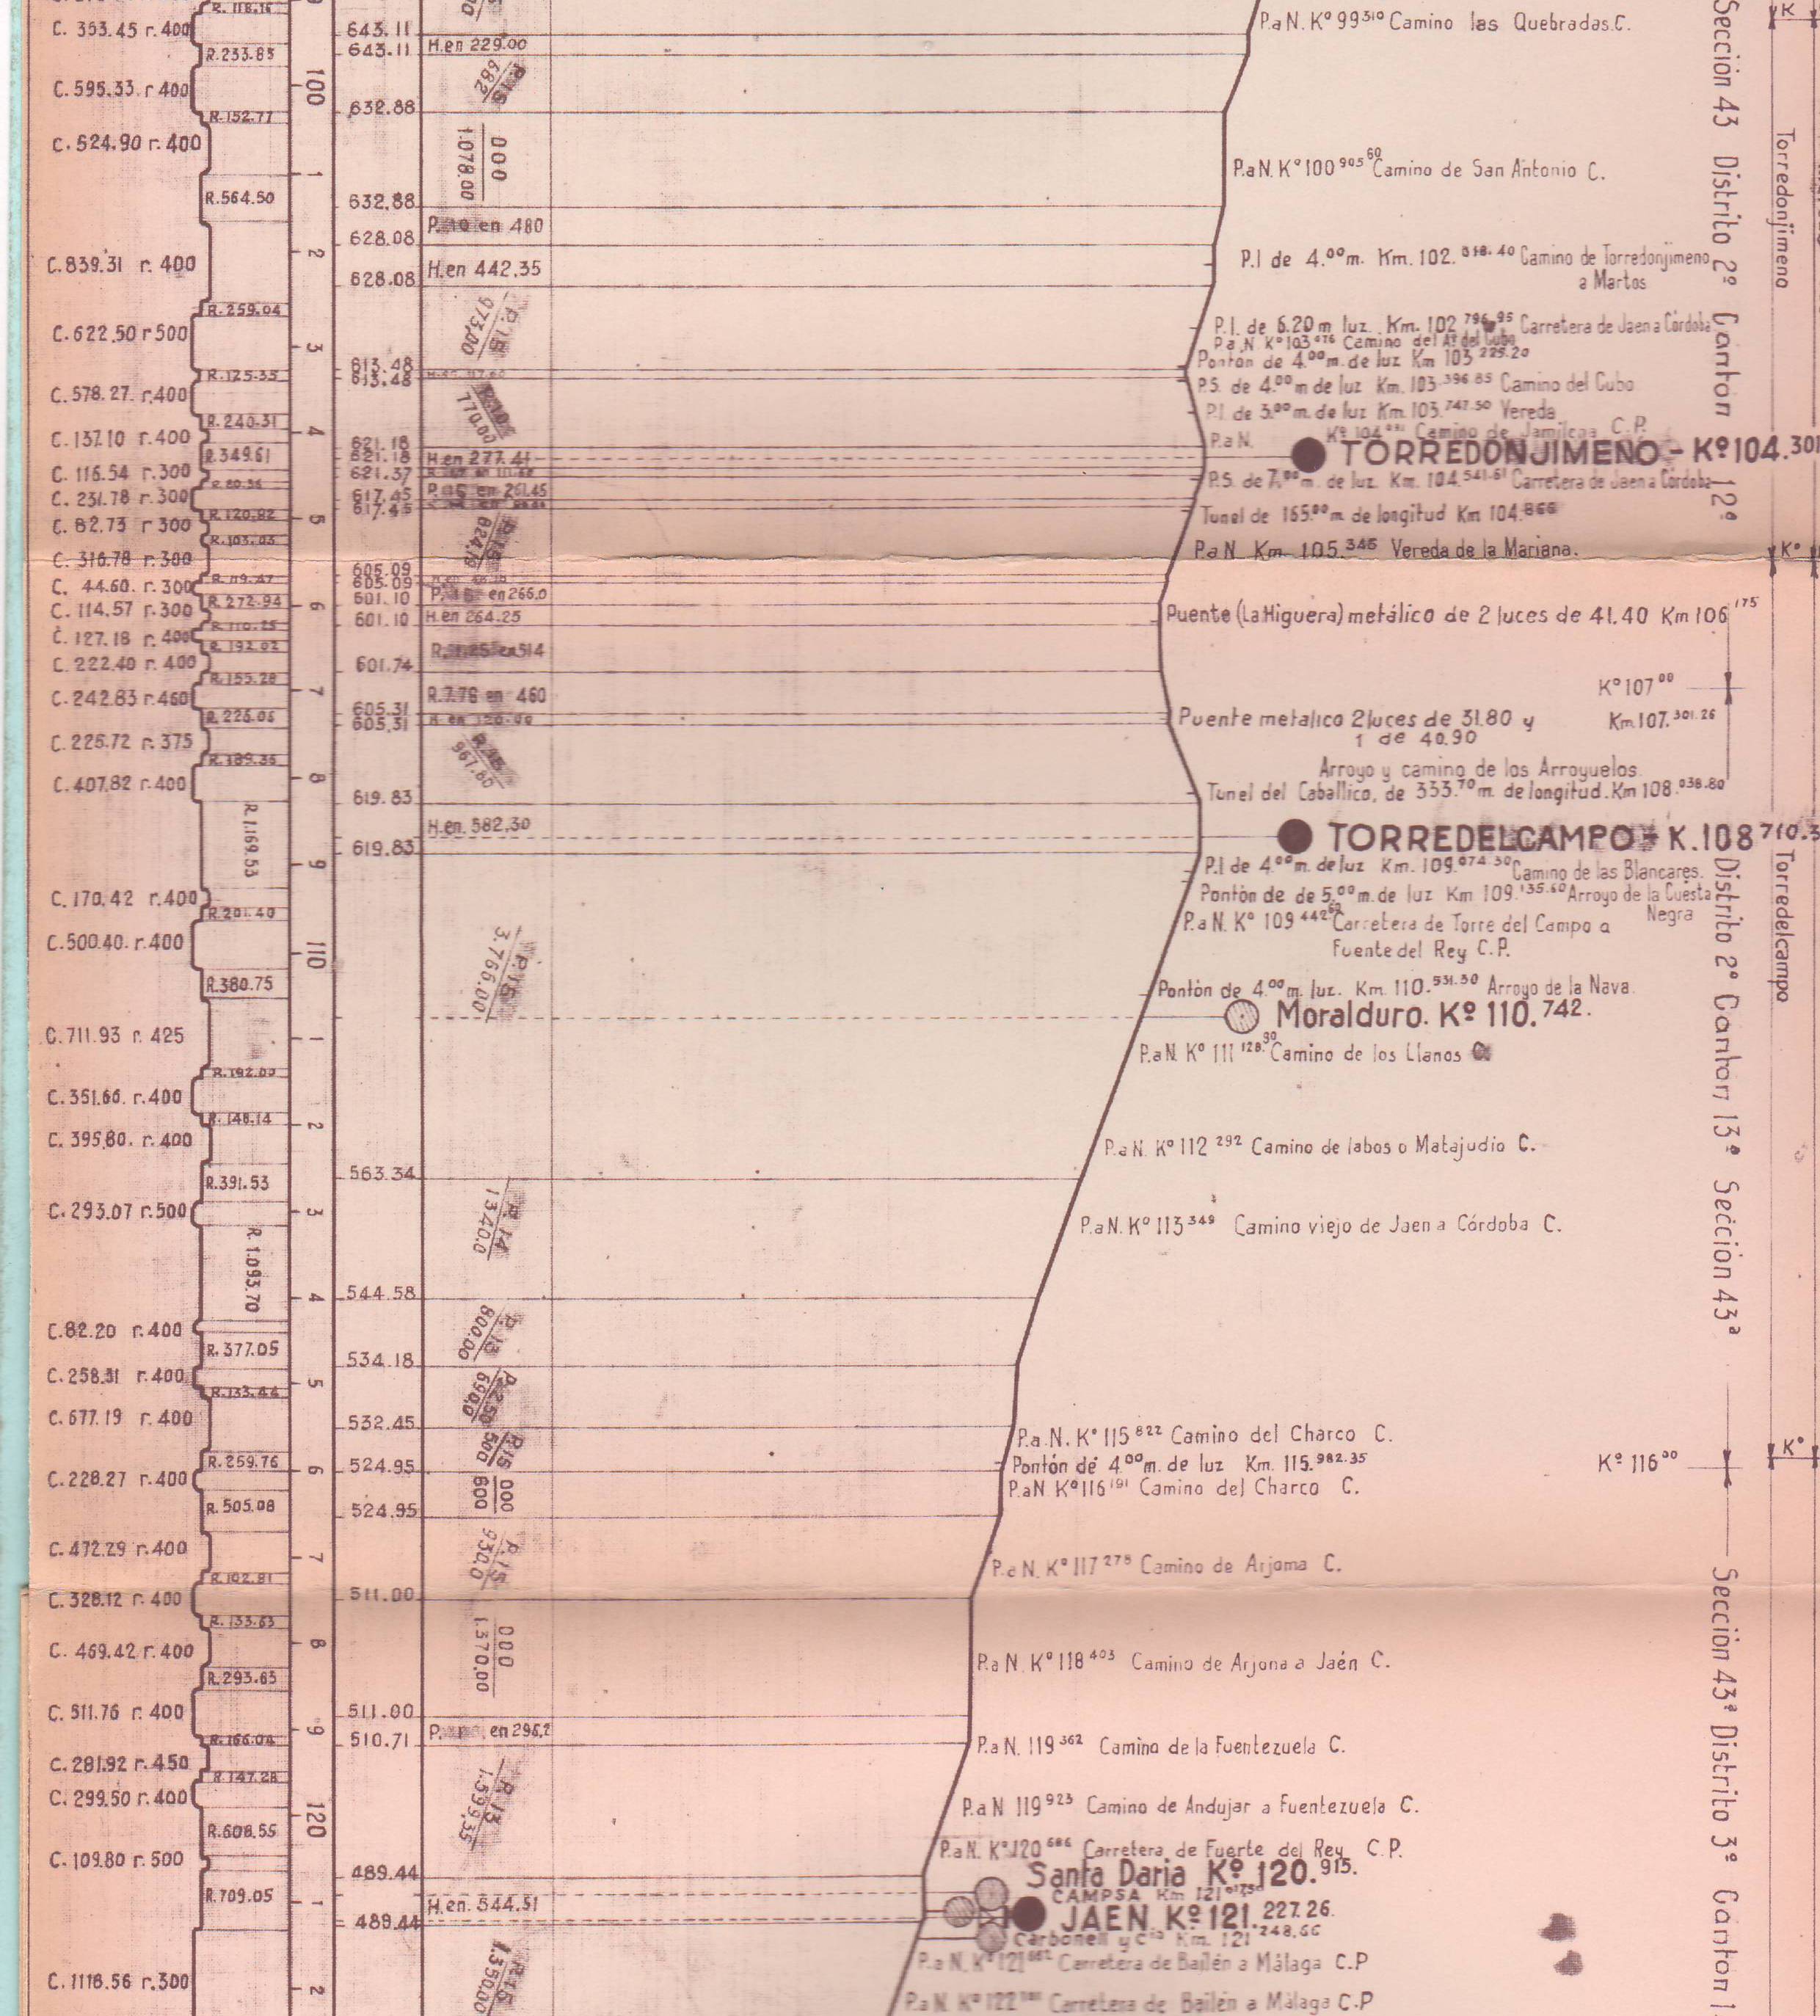 R. 118.16
C. 353.45 r. 400
R. 233.85
C. 595.33 r 400
R. 152.77
C. 524.90 r. 400
R. 564.50
C. 839.31 r. 400
R. 259.04
C. 622.50 r 500
R. 125.35
C. 578.27. r. 400
R. 240.31
C. 137.10 r. 400
R. 349.61
C. 116.54 r. 300
C. 231.78 r. 300
R. 120.82
C. 82.73 r 300
R. 103.03
C. 316.78 r. 300
C. 44.60. r. 300
R. 272.94
C. 114.57 r. 300
C. 127.18 r. 400
R. 192.02
C. 222.40 r. 400
R. 155.28
C. 242.83 r. 460
R. 226.06
C. 225.72 r. 375
R. 189.36
C. 407.82 r. 400
R. 1.169.53
C. 170.42 r. 400
R. 201.40
C. 500.40. r. 400
R. 380.75
C. 711.93 r. 425
C. 351.66. r. 400
R. 148.14
C. 395.80. r. 400
R. 391.53
C. 293.07 r. 500
R. 1.093.70
C. 82.20 r. 400
R. 377.05
C. 258.31 r. 400
R. 133.44
C. 677.19 r. 400
R. 259.76
C. 228.27 r. 400
R. 505.08
C. 472.29 r. 400
R. 102.81
C. 328.12 r. 400
R. 133.63
C. 469.42 r. 400
R. 293.65
C. 511.76 r. 400
R. 166.04
C. 281.92 r. 450
R. 147.28
C. 299.50 r. 400
R. 608.55
C. 109.80 r. 500
R. 709.05
C. 1118.56 r. 300
100
1
2
3
4
5
6
7
8
9
110
1
2
3
4
5
6
7
8
9
120
1
2
643.11
643.11
632.88
632.88
628.08
628.08
613.48
613.48
621.18
621.18
621.37
617.45
617.45
605.09
605.09
601.10
601.10
601.74
605.31
605.31
619.83
619.83
563.34
544.58
534.18
532.45
524.95
524.95
511.00
511.00
510.71
489.44
489.44
H. en 229.00
P. 15
682
000
1.078.00
P. 10 en 480
H. en 442.35
P. 15
973,00
R. 10
770.00
H. en 277.41
P. 15 en 261.45
P. 15 en 266.0
H. en 264.25
R. 7.76 en 460
H. en 120.00
R. 15
967.80
H. en. 582.30
P. 15
3.766.00
P. 14
1340.0
P. 13
800.00
P. 2.50
690.0
P. 15
500
000
600
P. 15
930.0
000
1.370.00
en 296.2
1.599.35
H. en. 544.51
1.350.00
P.a N. Kº 99 310 Camino las Quebradas. C.
P.a N. Kº 100 905 60 Camino de San Antonio C.
P.I de 4.00 m. Km. 102. 518.40 Camino de Torredonjimeno
a Martos
P.I. de 6.20 m luz. Km. 102 796.95 Carretera de Jaen a Córdoba
P.a N. Kº 103 076 Camino del Aº del Cubo
Pontón de 4.00 m. de luz Km 103 225.20
P.S. de 4.00 m de luz Km. 103 396 85 Camino del Cubo
P.I. de 3.00 m. de luz Km. 103. 747.50 Vereda
P.a N. Kº 104 Camino de Jamilena C.P.
TORREDONJIMENO - Kº 104.301
P.S. de 7.00 m. de luz. Km. 104. 541.61 Carretera de Jaen a Córdoba
Tunel de 165.00 m de longitud Km 104.866
P.a N. Km. 105. 345 Vereda de la Mariana.
Puente (La Higuera) metálico de 2 luces de 41.40 Km 106 175
Kº 107 00
Puente metalico 2 luces de 31.80 y
1 de 40.90
Km. 107. 301.26
Arroyo y camino de los Arroyuelos
Tunel del Caballico, de 333.70 m. de longitud. Km 108. 038.80
TORREDELCAMPO - K. 108 710.3
P.I de 4.00 m. de luz Km. 109. 074.50 Camino de las Blancares.
Pontón de de 5.00 m. de luz Km 109. 135.60 Arroyo de la Cuesta
Negra
P.a N. Kº 109 442 Carretera de Torre del Campo a
Fuente del Rey C.P.
Pontón de 4.00 m. luz. Km. 110. 531.30 Arroyo de la Nava.
Moralduro. Kº 110. 742.
P.a N. Kº 111 128. 90 Camino de los Llanos C.
P.a N. Kº 112 292 Camino de labos o Matajudio C.
P.a N. Kº 113 349 Camino viejo de Jaen a Córdoba C.
P.a. N. Kº 115 822 Camino del Charco C.
Pontón de 4.00 m. de luz Km. 115. 982.35
Kº 116 00
P.a N Kº 116 191 Camino del Charco C.
P.a N. Kº 117 278 Camino de Arjoma C.
P.a N. Kº 118 403 Camino de Arjona a Jaén C.
P.a N. 119 362 Camino de la Fuentezuela C.
P.a N 119 923 Camino de Andujar a Fuentezuela C.
P.a N. Kº 120 686 Carretera de Fuerte del Rey C.P.
Santa Daria Kº 120. 915.
CAMPSA Km 121
JAEN. Kº 121. 227.26.
Carbonell y Cia Km. 121 248.66
P.a N. Kº 121 Carretera de Bailén a Málaga C.P
P.a N. Kº 122 Carretera de Bailén a Málaga C.P
Sección 43 Distrito 2º Canton 12º
Distrito 2º Canton 13º Sección 43ª
Sección 43ª Distrito 3º Canton 1
K
Torredonjimeno
Kº
Torredelcampo
Kº